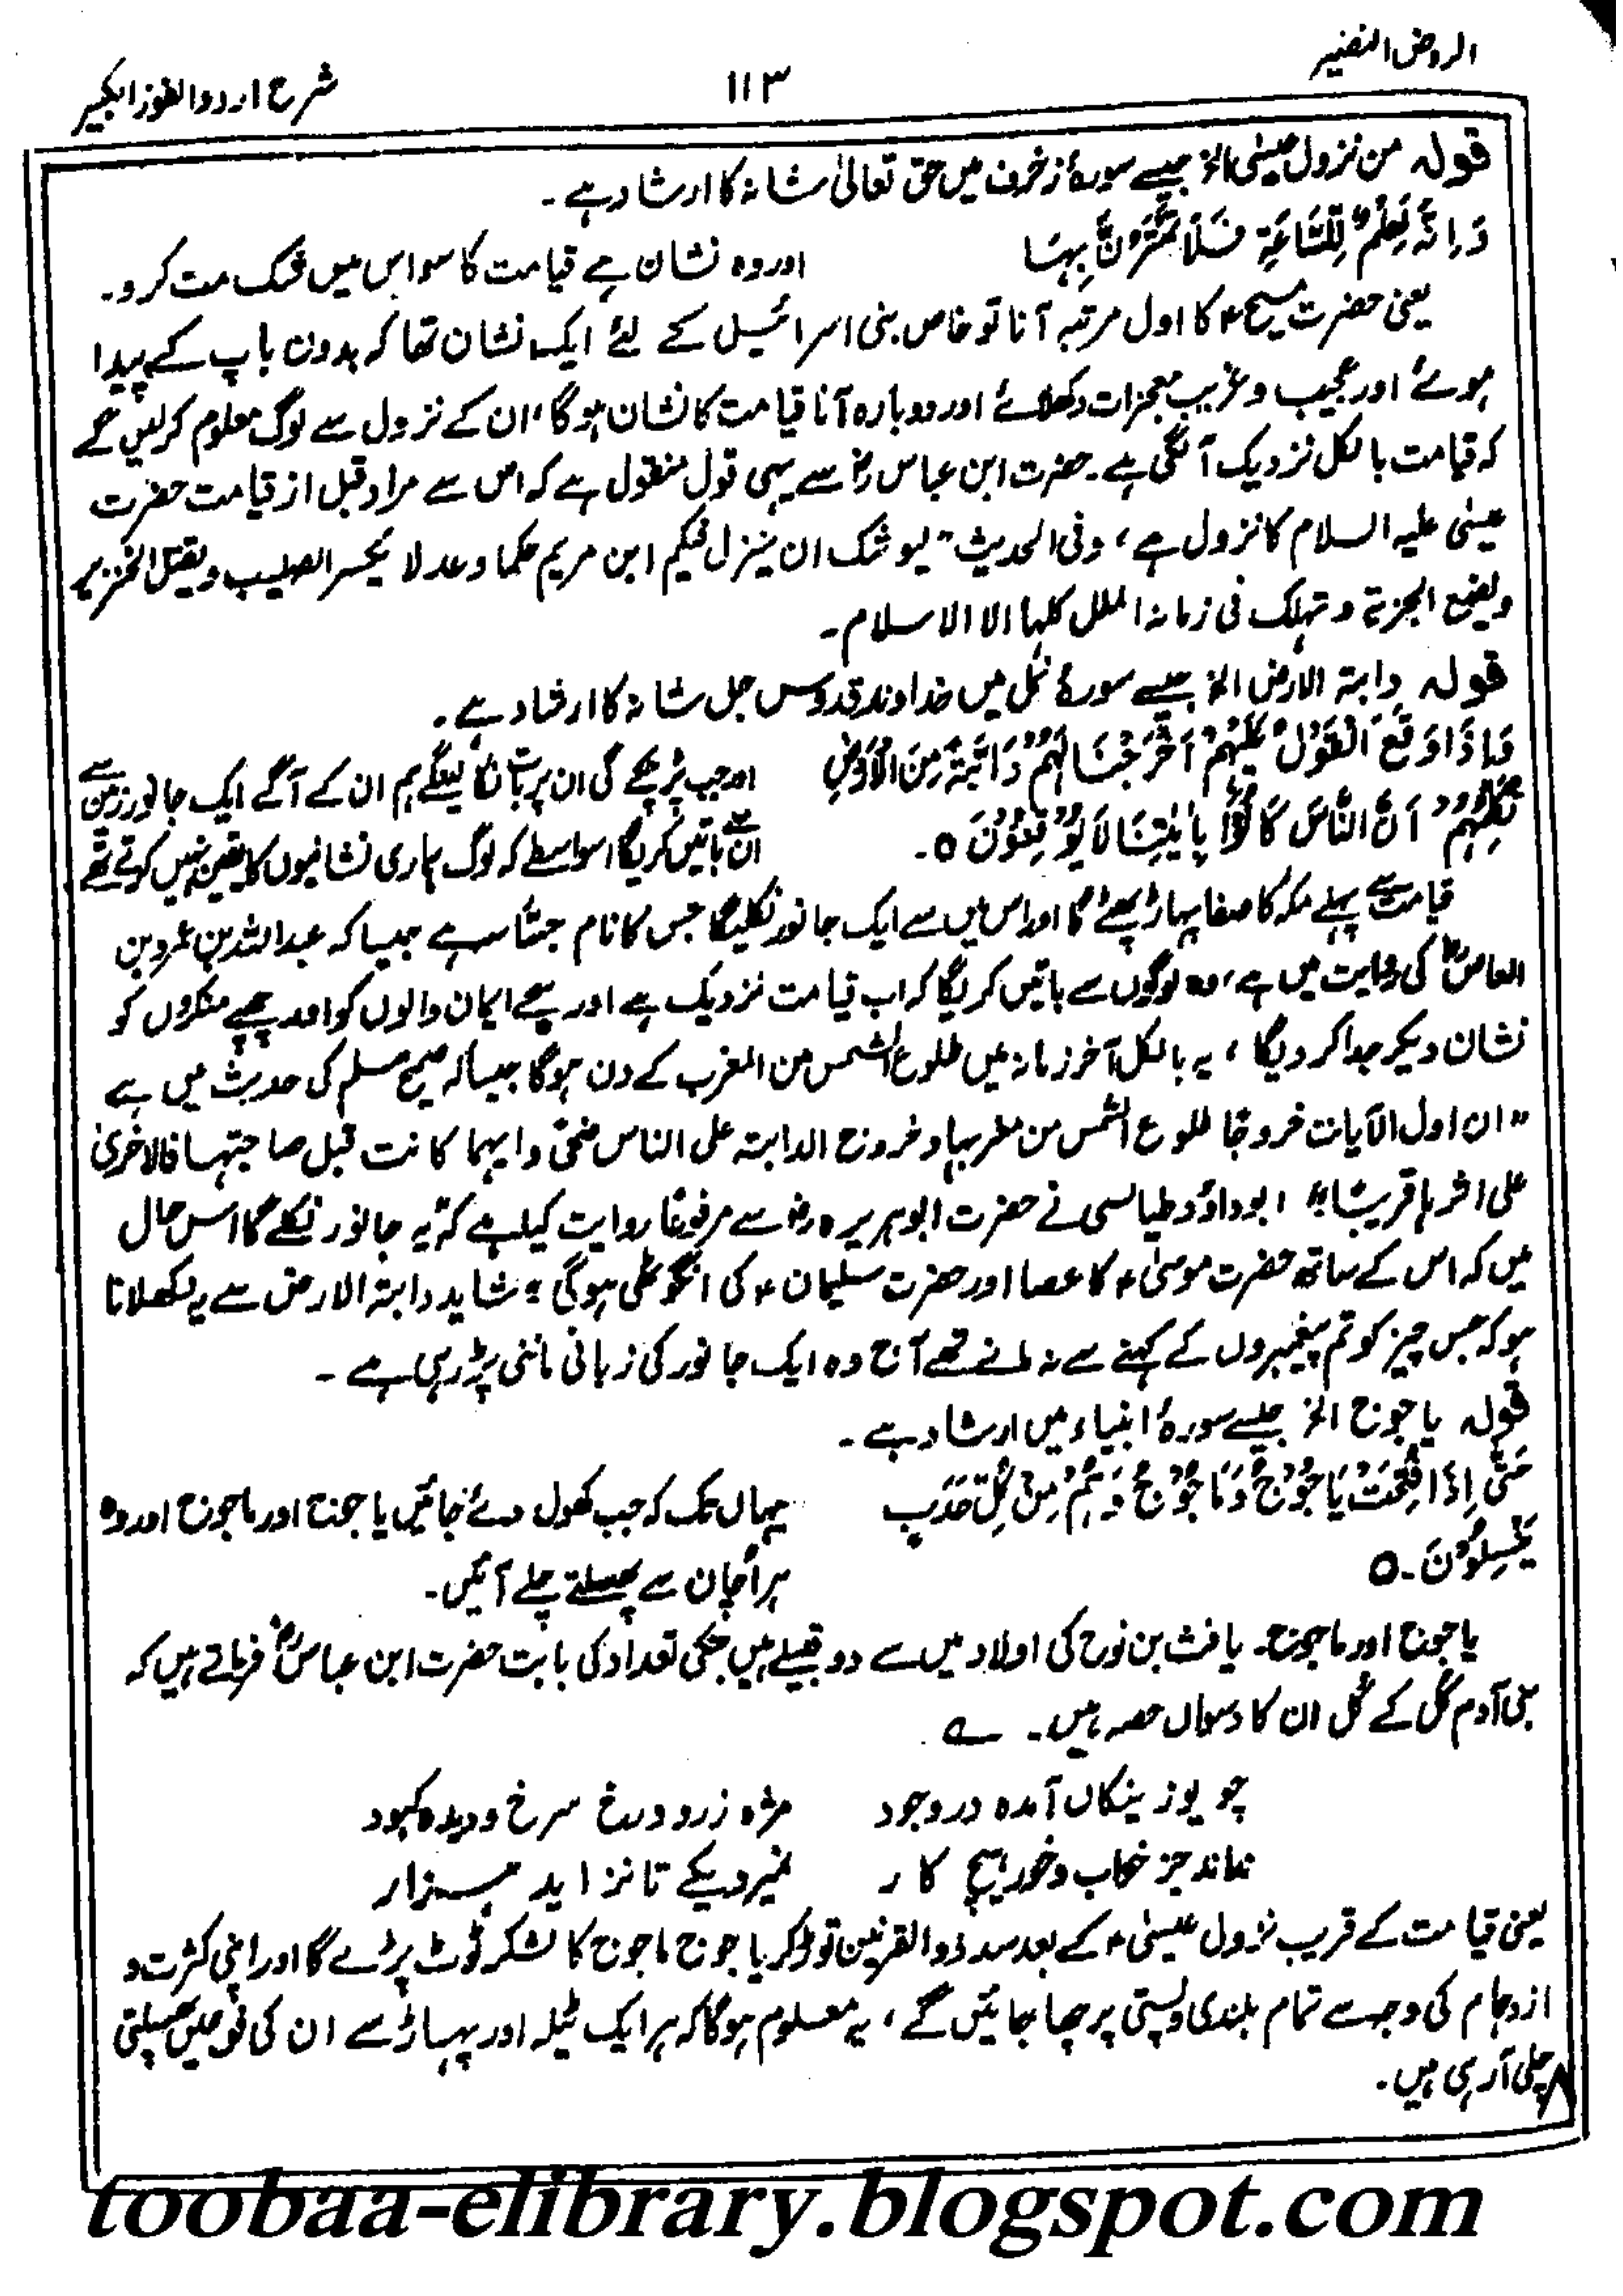 الروض النضیر
۱۱۳
شرح اردو الفوز الکبیر
قولہ من نزول عیسیٰ الخ جیسے سورۂ زخرف میں حق تعالیٰ شانہ کا ارشاد ہے۔
وَاِنَّہٗ لَعِلْمٌ لِّلسَّاعَۃِ فَلَا تَمْتَرُنَّ بِہَا
اور وہ نشان ہے قیامت کا سو اس میں شک مت کرو۔
یعنی حضرت مسیحؑ کا اول مرتبہ آنا تو خاص بنی اسرائیل کے لئے ایک نشان تھا کہ بدون باپ کے پیدا
ہوئے اور عجیب و غریب معجزات دکھلائے اور دوبارہ آنا قیامت کا نشان ہوگا، ان کے نزول سے لوگ معلوم کرلیں گے
کہ قیامت بالکل نزدیک آلگی ہے۔ حضرت ابن عباس رضؓ سے یہی قول منقول ہے کہ اس سے مراد قبل از قیامت حضرت
عیسیٰ علیہ السلام کا نزول ہے، وفی الحدیث "لیوشک ان ینزل فیکم ابن مریم حکما وعدلا یکسر الصلیب ویقتل الخنزیر
ویضع الجزیۃ وتہلک فی زمانہ الملل کلہا الا الاسلام۔
قولہ دابۃ الارض الخ جیسے سورۂ نمل میں خداوند قدوس جل شانہ کا ارشاد ہے۔
وَاِذَا وَقَعَ الْقَوْلُ عَلَیْہِمْ اَخْرَجْنَا لَہُمْ دَآبَّۃً مِّنَ الْاَرْضِ
اور جب پڑ چکے گی ان پر بات نکالیں گے ہم ان کے آگے ایک جانور زمین سے
تُکَلِّمُہُمْ اَنَّ النَّاسَ کَانُوْا بِاٰیٰتِنَا لَا یُوْقِنُوْنَ ۵۔
ان سے باتیں کریگا اسواسطے کہ لوگ ہماری نشانیوں کا یقین نہیں کرتے تھے
قیامت سے پہلے مکہ کا صفا پہاڑ پھٹے گا اور اس میں سے ایک جانور نکلیگا جس کا نام جساسہ ہے جیسا کہ عبداللہ بن عمرو بن
العاصؓ کی روایت میں ہے، وہ لوگوں سے باتیں کریگا کہ اب قیامت نزدیک ہے اور سچے ایمان والوں کو اور چھپے منکروں کو
نشان دیکر جدا کر دیگا، یہ بالکل آخر زمانہ میں طلوع الشمس من المغرب کے دن ہوگا جیسا کہ صحیح مسلم کی حدیث میں ہے
"ان اول الآیات خروجًا طلوع الشمس من مغربہا وخروج الدابۃ علی الناس ضحیً وایہما کانت قبل صاحبتہا فالاخریٰ
علی اثرہا قریبًا" ابو داؤد طیالسی نے حضرت ابوہریرہ رضؓ سے مرفوعًا روایت کیا ہے کہ یہ جانور نکلے گا اس حال
میں کہ اس کے ساتھ حضرت موسیٰؑ کا عصا اور حضرت سلیمانؑ کی انگوٹھی ہوگی؛ شاید دابۃ الارض سے یہ دکھلانا
ہو کہ جس چیز کو تم پیغمبروں کے کہنے سے نہ مانتے تھے آج وہ ایک جانور کی زبانی ماننی پڑ رہی ہے۔
قولہ یاجوج الخ جیسے سورۂ انبیاء میں ارشاد ہے۔
حَتّٰی اِذَا فُتِحَتْ یَاجُوْجُ وَمَاجُوْجُ وَہُمْ مِنْ کُلِّ حَدَبٍ
یہاں تک کہ جب کھول دئے جائیں یاجوج اور ماجوج اور وہ
یَنْسِلُوْنَ۔۵
ہر اُچان سے پھسلتے چلے آئیں۔
یاجوج اور ماجوج۔ یافث بن نوح کی اولاد میں سے دو قبیلے ہیں جنکی تعداد کی بابت حضرت ابن عباسؓ فرماتے ہیں کہ
بنی آدم کُل کے کُل ان کا دسواں حصہ ہیں۔ ؎
چو یوزینکاں آمدہ در وجود
مژہ زرد و رخ سرخ و دیدہ کبود
نماند جز خواب و خور ہیچ کار
نمیرد یکے تا نزاید ہزار
یعنی قیامت کے قریب نزول عیسیٰؑ کے بعد سد ذوالقرنین توڑ کر یاجوج ماجوج کا لشکر ٹوٹ پڑے گا اور اپنی کثرت و
ازدہام کی وجہ سے تمام بلندی و پستی پر چھا جائیں گے، یہ معلوم ہوگا کہ ہر ایک ٹیلہ اور پہاڑ سے ان کی فوجیں پھسلتی
چلی آرہی ہیں۔
۸
toobaa-elibrary.blogspot.com